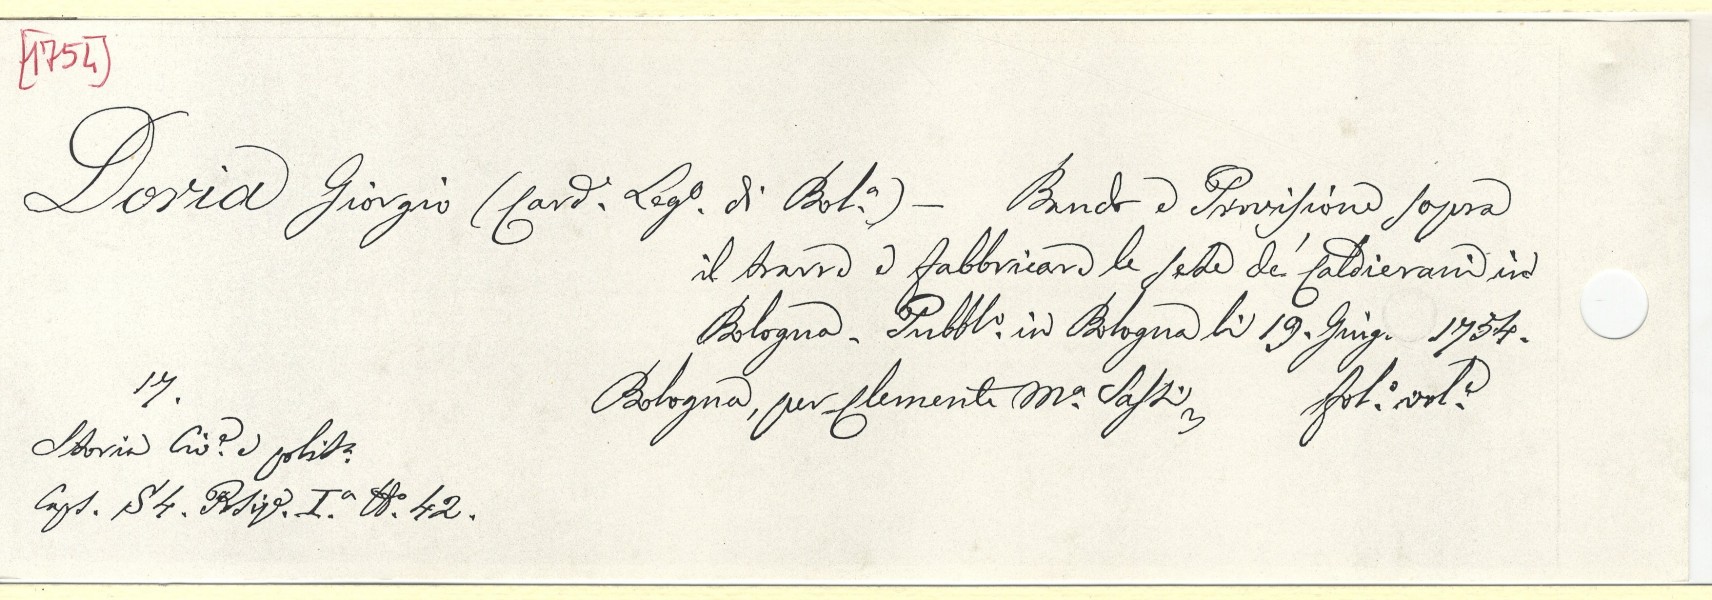 [1754]
Doria Giorgio (Card.e Leg.o di Bol.a) — Bando e Provisione sopra
il trarre e fabbricare le sete de' Caldierani in
Bologna. Pubbl.o in Bologna li 19. Giug. 1754.
Bologna, per Clemente M.a Sassi, fol.o vol.e
17.
Storia Civ.e e polit.a
Cart. S4. I.a N.o 42.